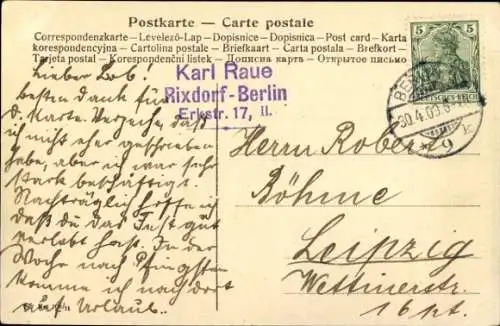 Postkarte — Carte postale
Correspondenzkarte – Levelező-Lap – Dopisnice – Dopisnica – Post card – Karta
korespondencyjna – Cartolina postale – Briefkaart – Carta postala – Brefkort –
Tarjeta postal – Korespondenční listek – Дописна карта – Открытое письмо
5
DEUTSCHES REICH
30.4.09
Karl Raue
Rixdorf-Berlin
Erkstr. 17, II.
Lieber Rob!
besten Dank für
d. Karte. Verzeihe, daß
ich nicht eher geschrieben
habe, aber ich war sehr
stark beschäftigt.
Nachträglich hoffe ich
daß du das Fest gut
verlebt hast. In der
Woche nach Pfingsten
komme ich nach dort
auf Urlaub..
Herrn Robert
Böhme
Leipzig
Wettinerstr.
16 pt.